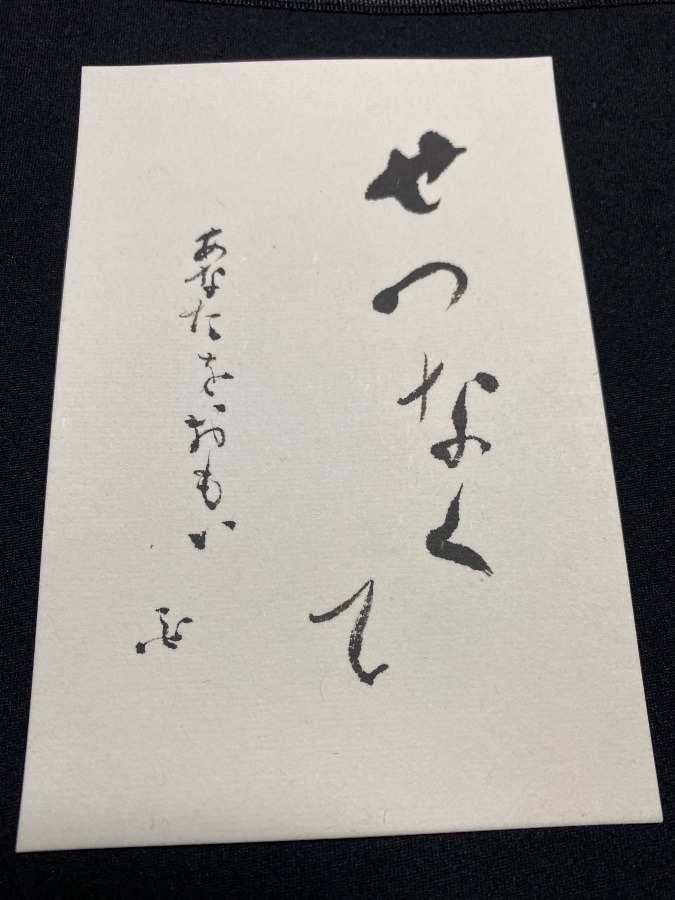 せつなくて
あなたをおもい